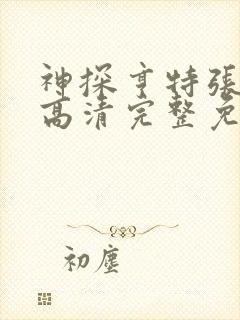 神探亨特張
高清完整免
初塵